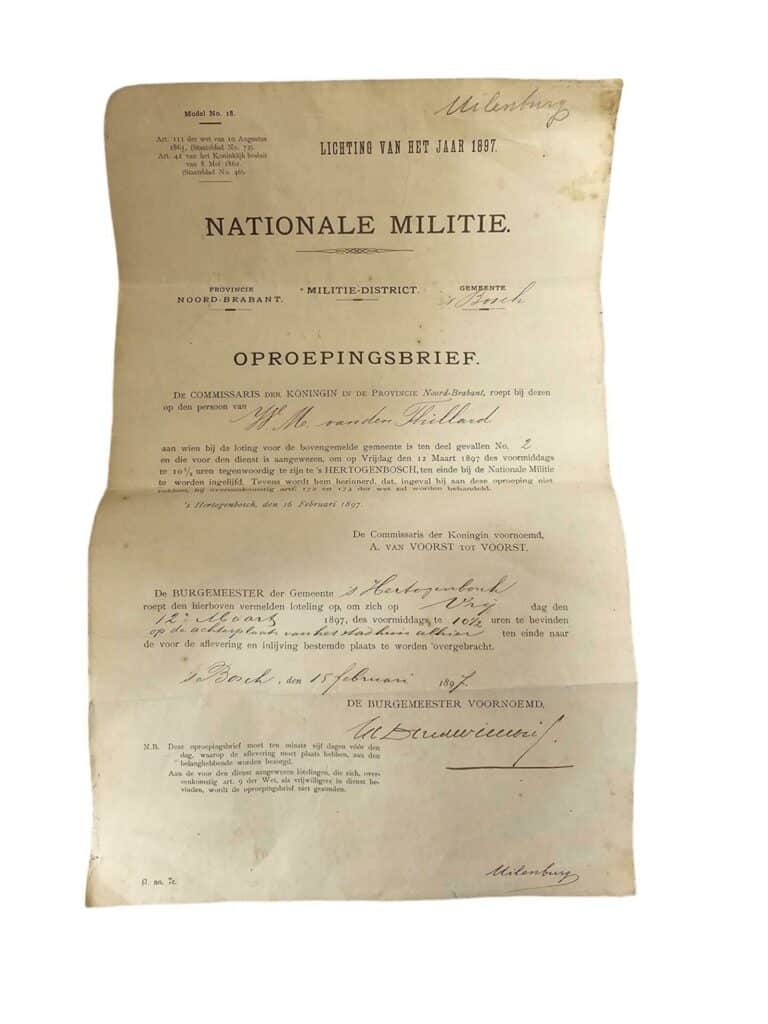 Uilenburg
Model No. 18.
Art. 111 der wet van 19 Augustus
1861, (Staatsblad No. 72).
Art. 42 van het Koninklijk besluit
van 8 Mei 1862.
(Staatsblad No. 46).
LICHTING VAN HET JAAR 1897.
NATIONALE MILITIE.
PROVINCIE
NOORD-BRABANT.
MILITIE-DISTRICT.
GEMEENTE
's Bosch
OPROEPINGSBRIEF.
DE COMMISSARIS DER KONINGIN IN DE PROVINCIE Noord-Brabant, roept bij dezen
op den persoon van
W. M. van den Thillard
aan wien bij de loting voor de bovengemelde gemeente is ten deel gevallen No. 2
en die voor den dienst is aangewezen, om op Vrijdag den 12 Maart 1897 des voormiddags
te 10½ uren tegenwoordig te zijn te 's HERTOGENBOSCH, ten einde bij de Nationale Militie
te worden ingelijfd. Tevens wordt hem herinnerd, dat, ingeval hij aan deze oproeping niet
der wet zal worden behandeld.
's Hertogenbosch, den 16 Februari 1897.
De Commissaris der Koningin voornoemd,
A. VAN VOORST TOT VOORST.
De BURGEMEESTER der Gemeente 's Hertogenbosch
roept den hierboven vermelden loteling op, om zich op Vrij dag den
12n Maart 1897, des voormiddags te 10½ uren te bevinden
op de achterplaats van het stadhuis alhier ten einde naar
de voor de aflevering en inlijving bestemde plaats te worden overgebracht.
's Bosch, den 15 februari 1897.
DE BURGEMEESTER VOORNOEMD,
N.B. Deze oproepingsbrief moet ten minste vijf dagen vóór den
dag, waarop de aflevering moet plaats hebben, aan den
belanghebbende worden bezorgd.
Aan de voor den dienst aangewezen lotelingen, die zich, over-
eenkomstig art. 9 der Wet, als vrijwilligers in dienst be-
vinden, wordt de oproepingsbrief niet gezonden.
G. no. 7c.
Uilenburg